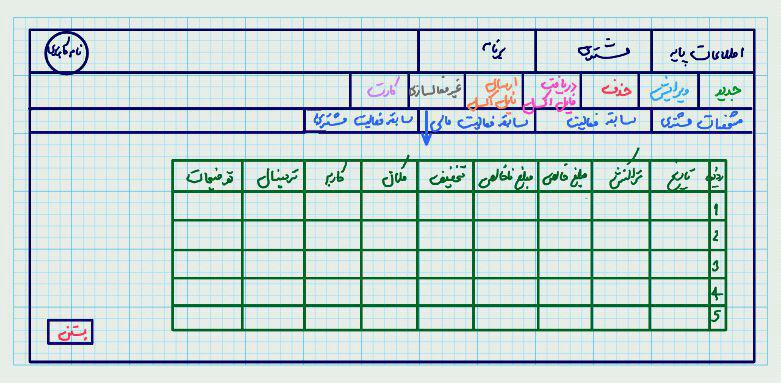 اطلاعات پایه مشتری برنامه نام کاربری
جدید ویرایش حذف دریافت فایل اکسل ارسال فایل اکسل غیرفعالسازی کارت
مشخصات مشتری سابقه فعالیت سابقه فعالیت مالی سابقه فعالیت مشتری
ردیف تاریخ تراکنش مبلغ خالص مبلغ ناخالص تخفیف مکان کاربر ترمینال توضیحات
1
2
3
4
5
بستن